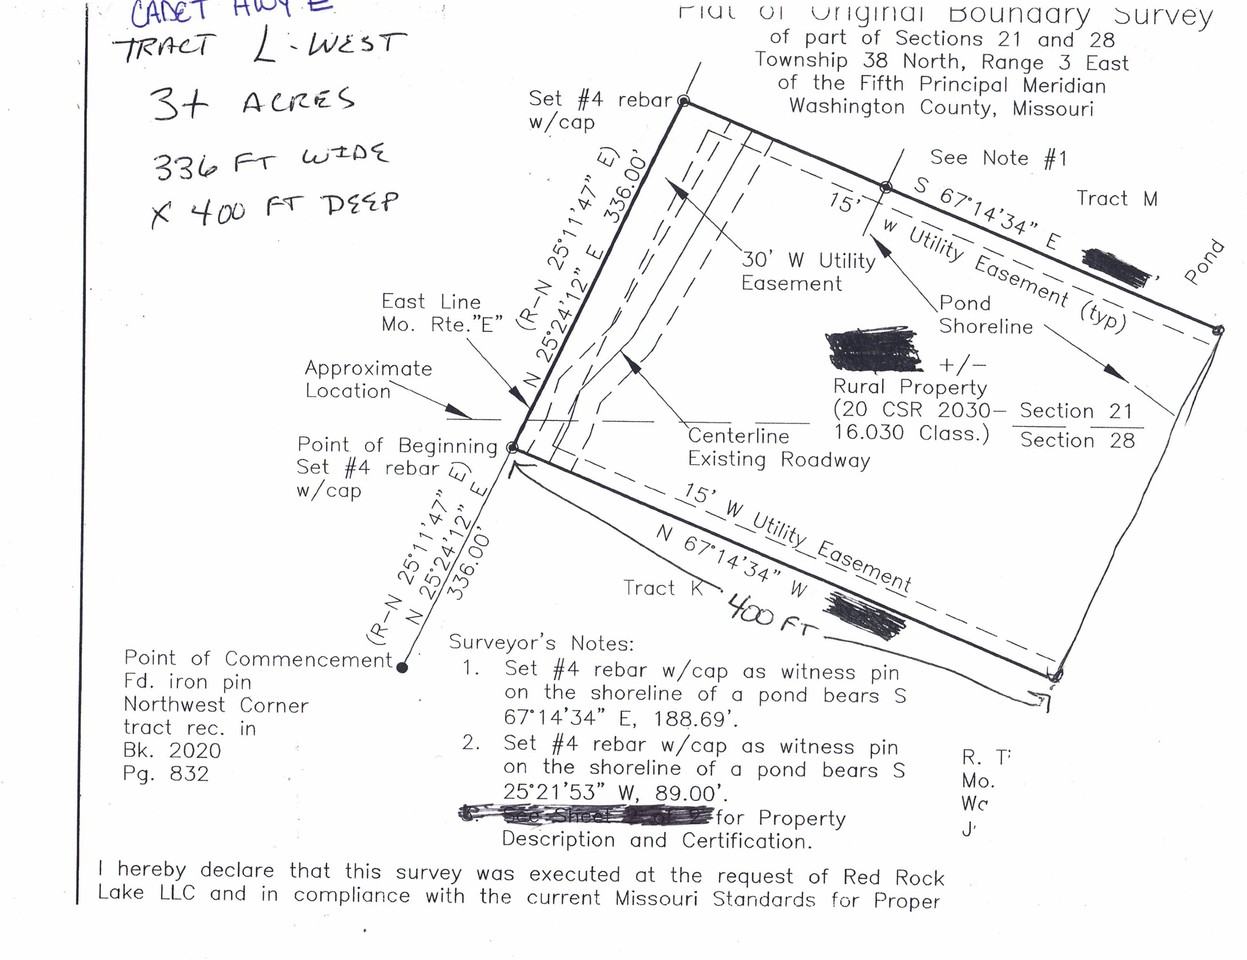 CADET HWY E
TRACT L-WEST
3+ ACRES
336 FT WIDE
X 400 FT DEEP
Plat of Original Boundary Survey
of part of Sections 21 and 28
Township 38 North, Range 3 East
of the Fifth Principal Meridian
Washington County, Missouri
Set #4 rebar
w/cap
See Note #1
Tract M
S 67°14'34" E
15' W Utility Easement (typ)
Pond
(R-N 25°11'47" E)
N 25°24'12" E 336.00'
30' W Utility
Easement
East Line
Mo. Rte."E"
Pond
Shoreline
Approximate
Location
+/-
Rural Property
(20 CSR 2030-
16.030 Class.)
Section 21
Section 28
Centerline
Existing Roadway
Point of Beginning
Set #4 rebar
w/cap
15' W Utility Easement
N 67°14'34" W
(R-N 25°11'47" E)
N 25°24'12" E
336.00'
Tract K
400 FT
Point of Commencement
Fd. iron pin
Northwest Corner
tract rec. in
Bk. 2020
Pg. 832
Surveyor's Notes:
1. Set #4 rebar w/cap as witness pin
on the shoreline of a pond bears S
67°14'34" E, 188.69'.
2. Set #4 rebar w/cap as witness pin
on the shoreline of a pond bears S
25°21'53" W, 89.00'.
See Sheet 2 of 2 for Property
Description and Certification.
R. T
Mo.
Wc
J
I hereby declare that this survey was executed at the request of Red Rock
Lake LLC and in compliance with the current Missouri Standards for Proper